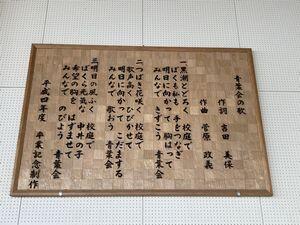 青葉会の歌
作詞 吉田 美保
作曲 菅原 政義
一 黒潮とどろく 校庭で
ぼくも私も 手をつなぎ
明日に向かって 胸はって
みんなで きずこう 青葉会
二 つばき花咲く 校庭で
歌声高く ひびかせて
明日に向かって こだまする
みんなで 歌おう 青葉会
三 明日の風ふく 校庭で
ぼくら元気な 中井の子
希望の胸を はずませて
みんなで のびよう 青葉会
平成四年度 卒業記念制作